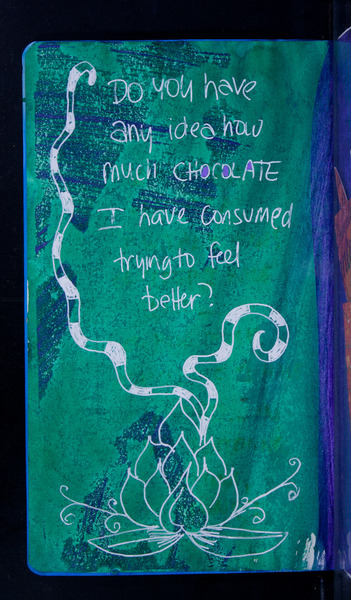 Do you have
any idea how
much CHOCOLATE
I have consumed
trying to feel
better?